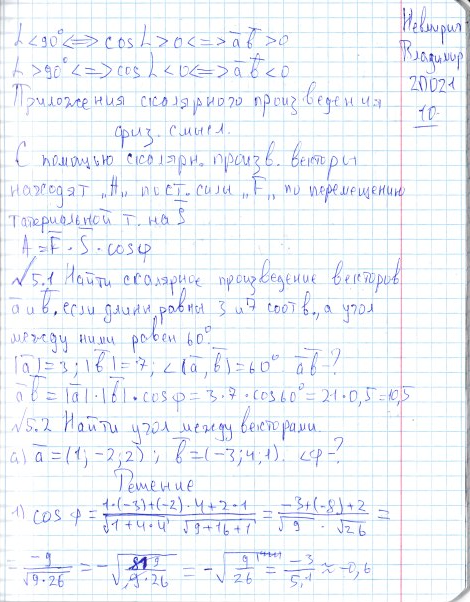 L < 90° <=> cos L > 0 <=> a̅ b̅ > 0
L > 90° <=> cos L < 0 <=> a̅ b̅ < 0
Невмирич
Владимир
2П021
10
Приложения скалярного произведения
физ. смысл.
С помощью скалярн. произв. векторы
находят „А„ пост. силы „F̅„ по перемещению
материальной т. на S̅
A = F̅ · S̅ · cosφ
√5.1 Найти скалярное произведение векторов
a̅ и b̅, если длины равны 3 и 7 соотв., а угол
между ними равен 60°
|a̅| = 3; |b̅| = 7; ∠(a̅, b̅) = 60° a̅b̅ - ?
a̅b̅ = |a̅| · |b̅| · cosφ = 3 · 7 · cos60° = 21 · 0,5 = 10,5
√5.2 Найти угол между векторами
а) a̅ = (1; -2; 2); b̅ = (-3; 4; 1). <φ - ?
Решение
1) cos φ = (1·(-3)+(-2)·4+2·1)/(√1+4+4 · √9+16+1) = (-3+(-8)+2)/(√9 · √26) =
= -9/√9·26 = -√(819/9·26) = -√(9/26) = -3/5,1 ≈ -0,6